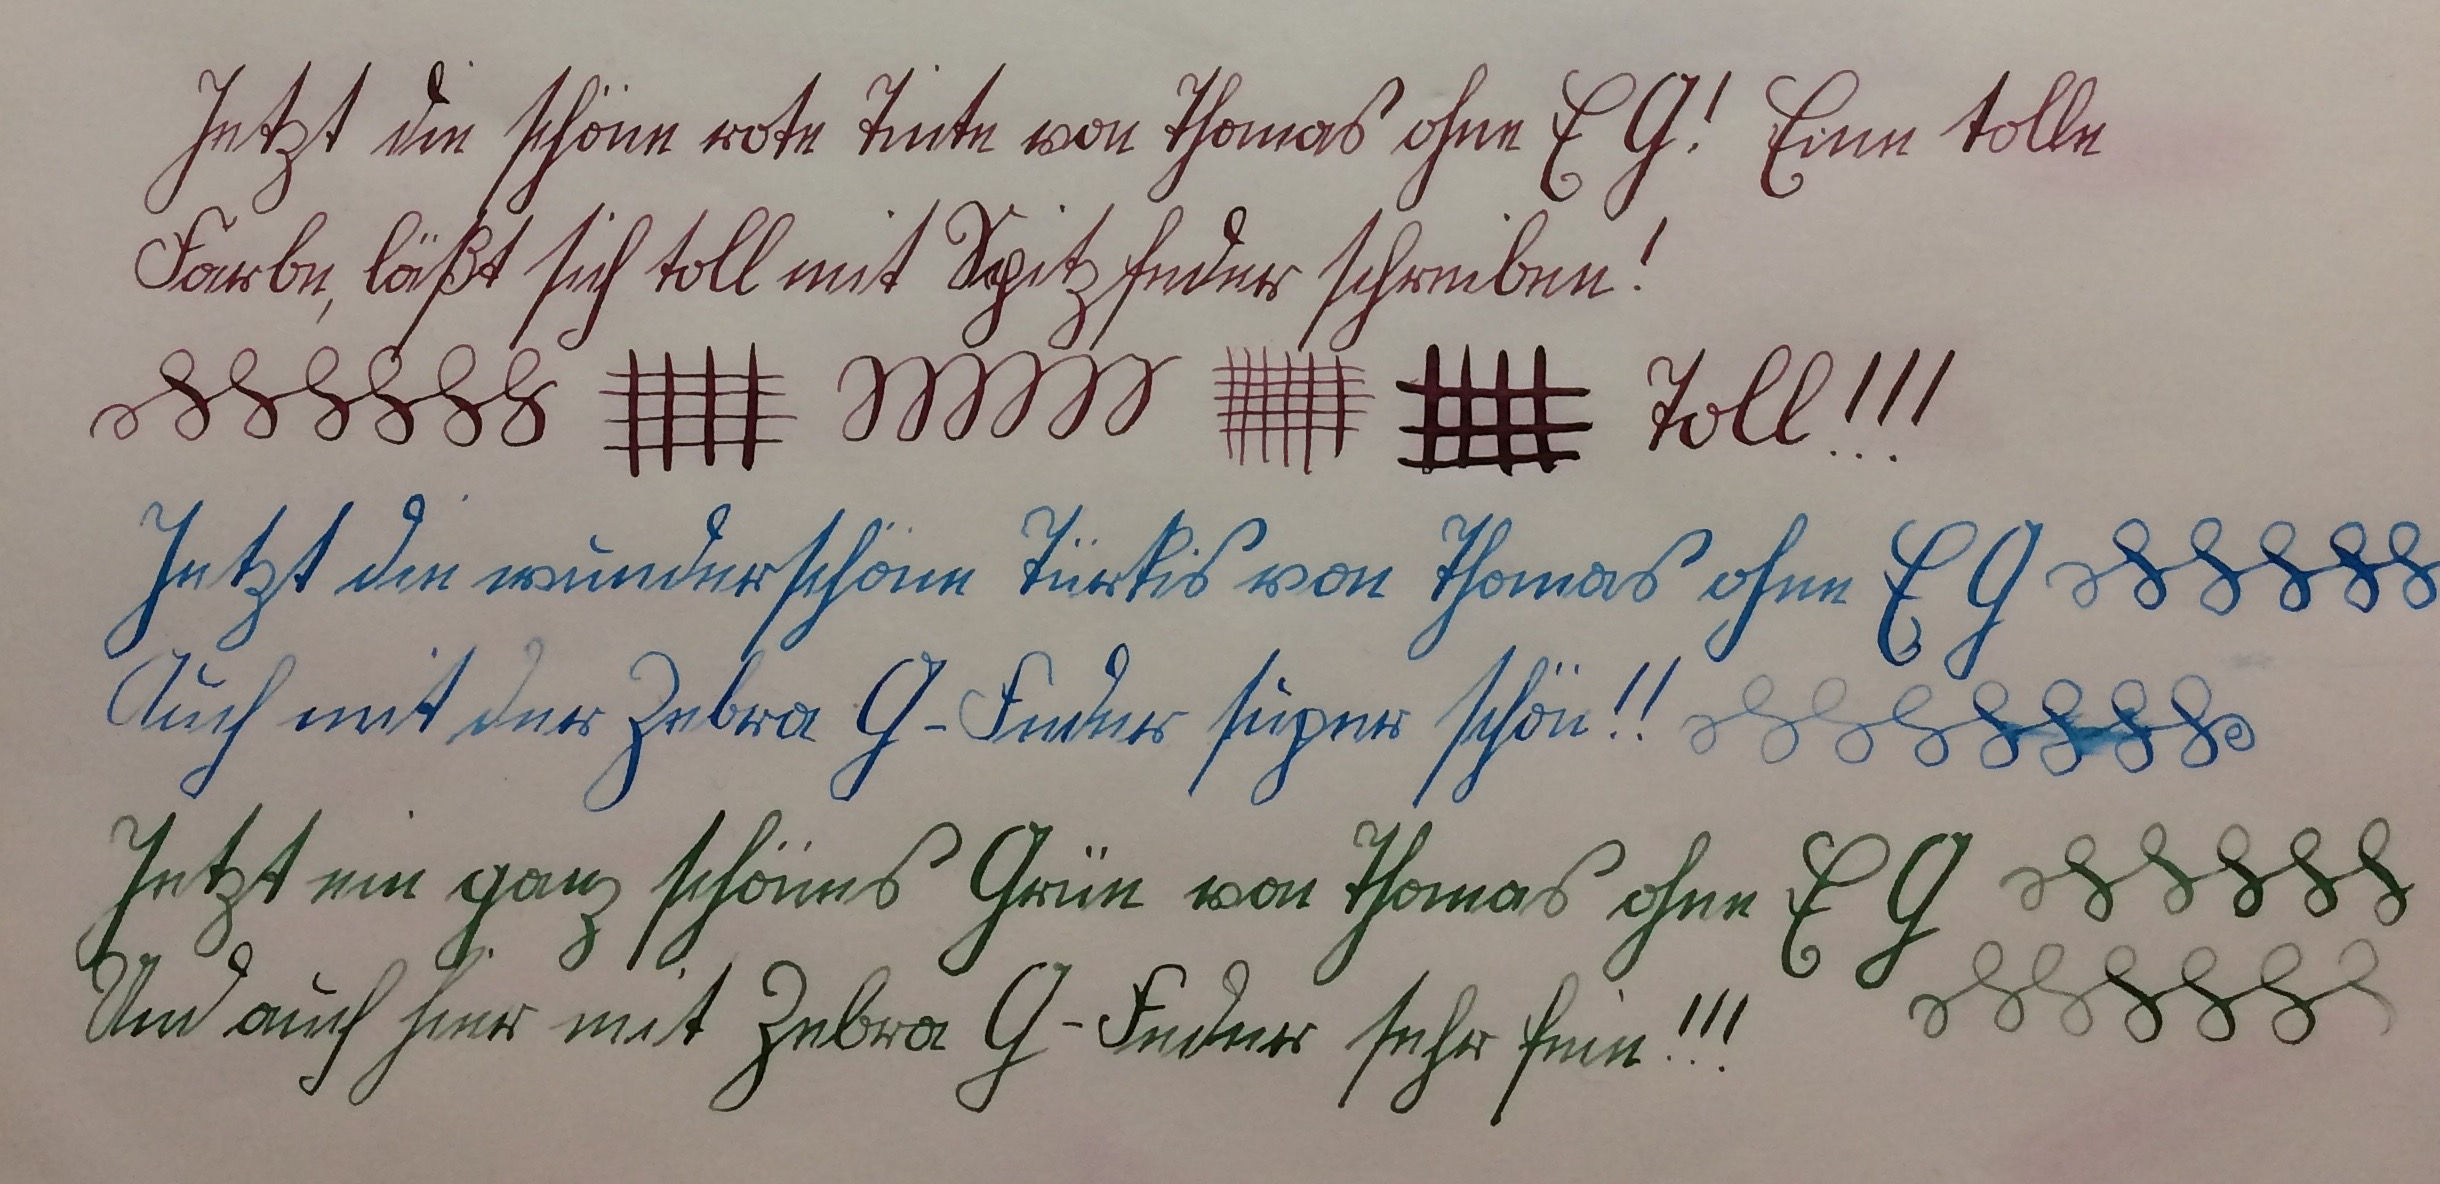 Jetzt die schöne rote Tinte von Thomas ohne EG! Eine tolle
Farbe, läßt sich toll mit Spitzfeder schreiben!
Toll!!!
Jetzt die wunderschöne Türkis von Thomas ohne EG
Auch mit der Zebra G-Feder super schön!!
Jetzt ein ganz schönes Grün von Thomas ohne EG
Und auch hier mit Zebra G-Feder sehr fein!!!